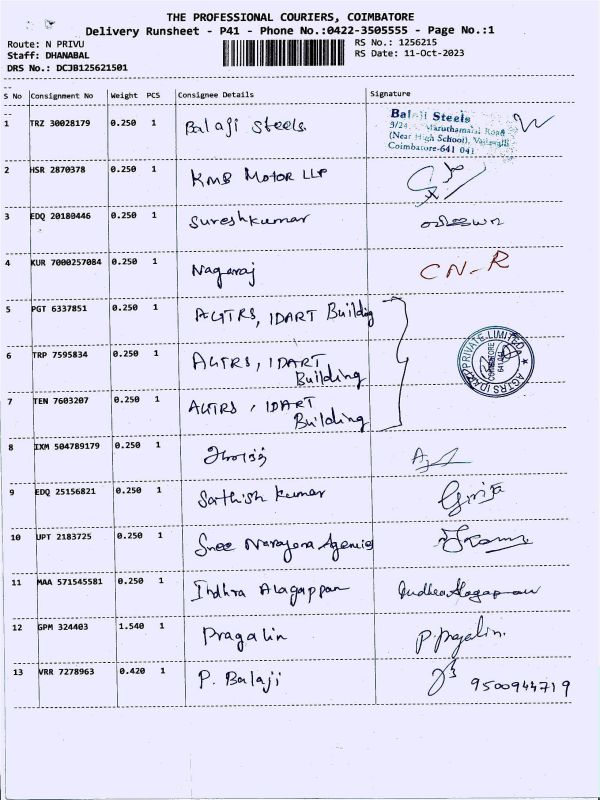 THE PROFESSIONAL COURIERS, COIMBATORE
Delivery Runsheet - P41 - Phone No.:0422-3505555 - Page No.:1
Route: N PRIVU
RS No.: 1256215
Staff: DHANABAL
RS Date: 11-Oct-2023
DRS No.: DCJB125621501
S No Consignment No Weight PCS Consignee Details Signature
1 TRZ 30028179 0.250 1 Balaji Steels
Balaji Steels
3/24, Maruthamalai Road
(Near High School), Vadavalli
Coimbatore-641 041
2 HSR 2870378 0.250 1 KMB MOTOR LLP
3 EDQ 20180446 0.250 1 Sureshkumar
4 KUR 7000257084 0.250 1 Nagaraj CN-R
5 PGT 6337851 0.250 1 AGTRS, IDART Building
6 TRP 7595834 0.250 1 AGTRS, IDART
Building
7 TEN 7603207 0.250 1 AGTRS, IDART
Building
AGTRS IDART PRIVATE LIMITED
COIMBATORE
8 IXM 504789179 0.250 1
9 EDQ 25156821 0.250 1 Sathish kumar Girija
10 UPT 2183725 0.250 1 Sree Narayana Agencies
11 MAA 571545581 0.250 1 Indhra Alagappan Indhra Alagappan
12 GPM 324403 1.540 1 Pragalin P. Pragalin.
13 VRR 7278963 0.420 1 P. Balaji 9500944719